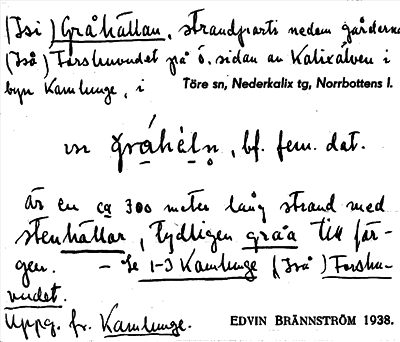 (Isi) Gråhällan, strandparti nedom gårdarna
(Iså) Forshuvudet på ö. sidan av Kalixälven i
byn Kamlunge, i Töre sn, Nederkalix tg, Norrbottens l.
gråhèln, bf. fem. dat.
är en ca 300 meter lång strand med
stenhällar, tydligen gråa till fär-
gen. – Se 1-3 Kamlunge (Iså) Forshu-
vudet.
Uppg. fr. Kamlunge. EDVIN BRÄNNSTRÖM 1938.